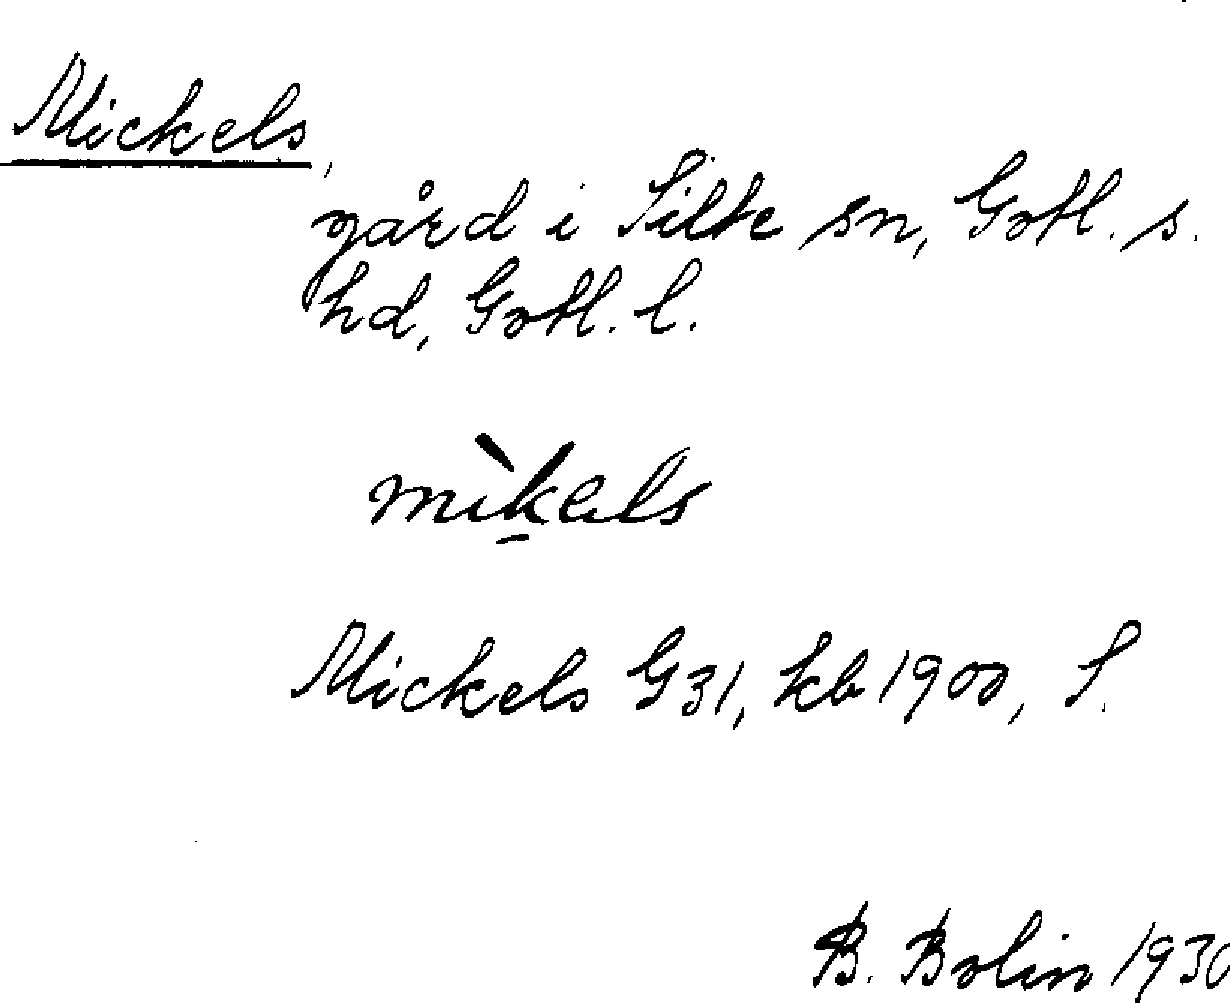 Mickels,
gård i Silte sn, Gotl. s.
hd, Gotl. l.
mìkels
Mickels G31, kb 1900, S.
B. Bolin 1930